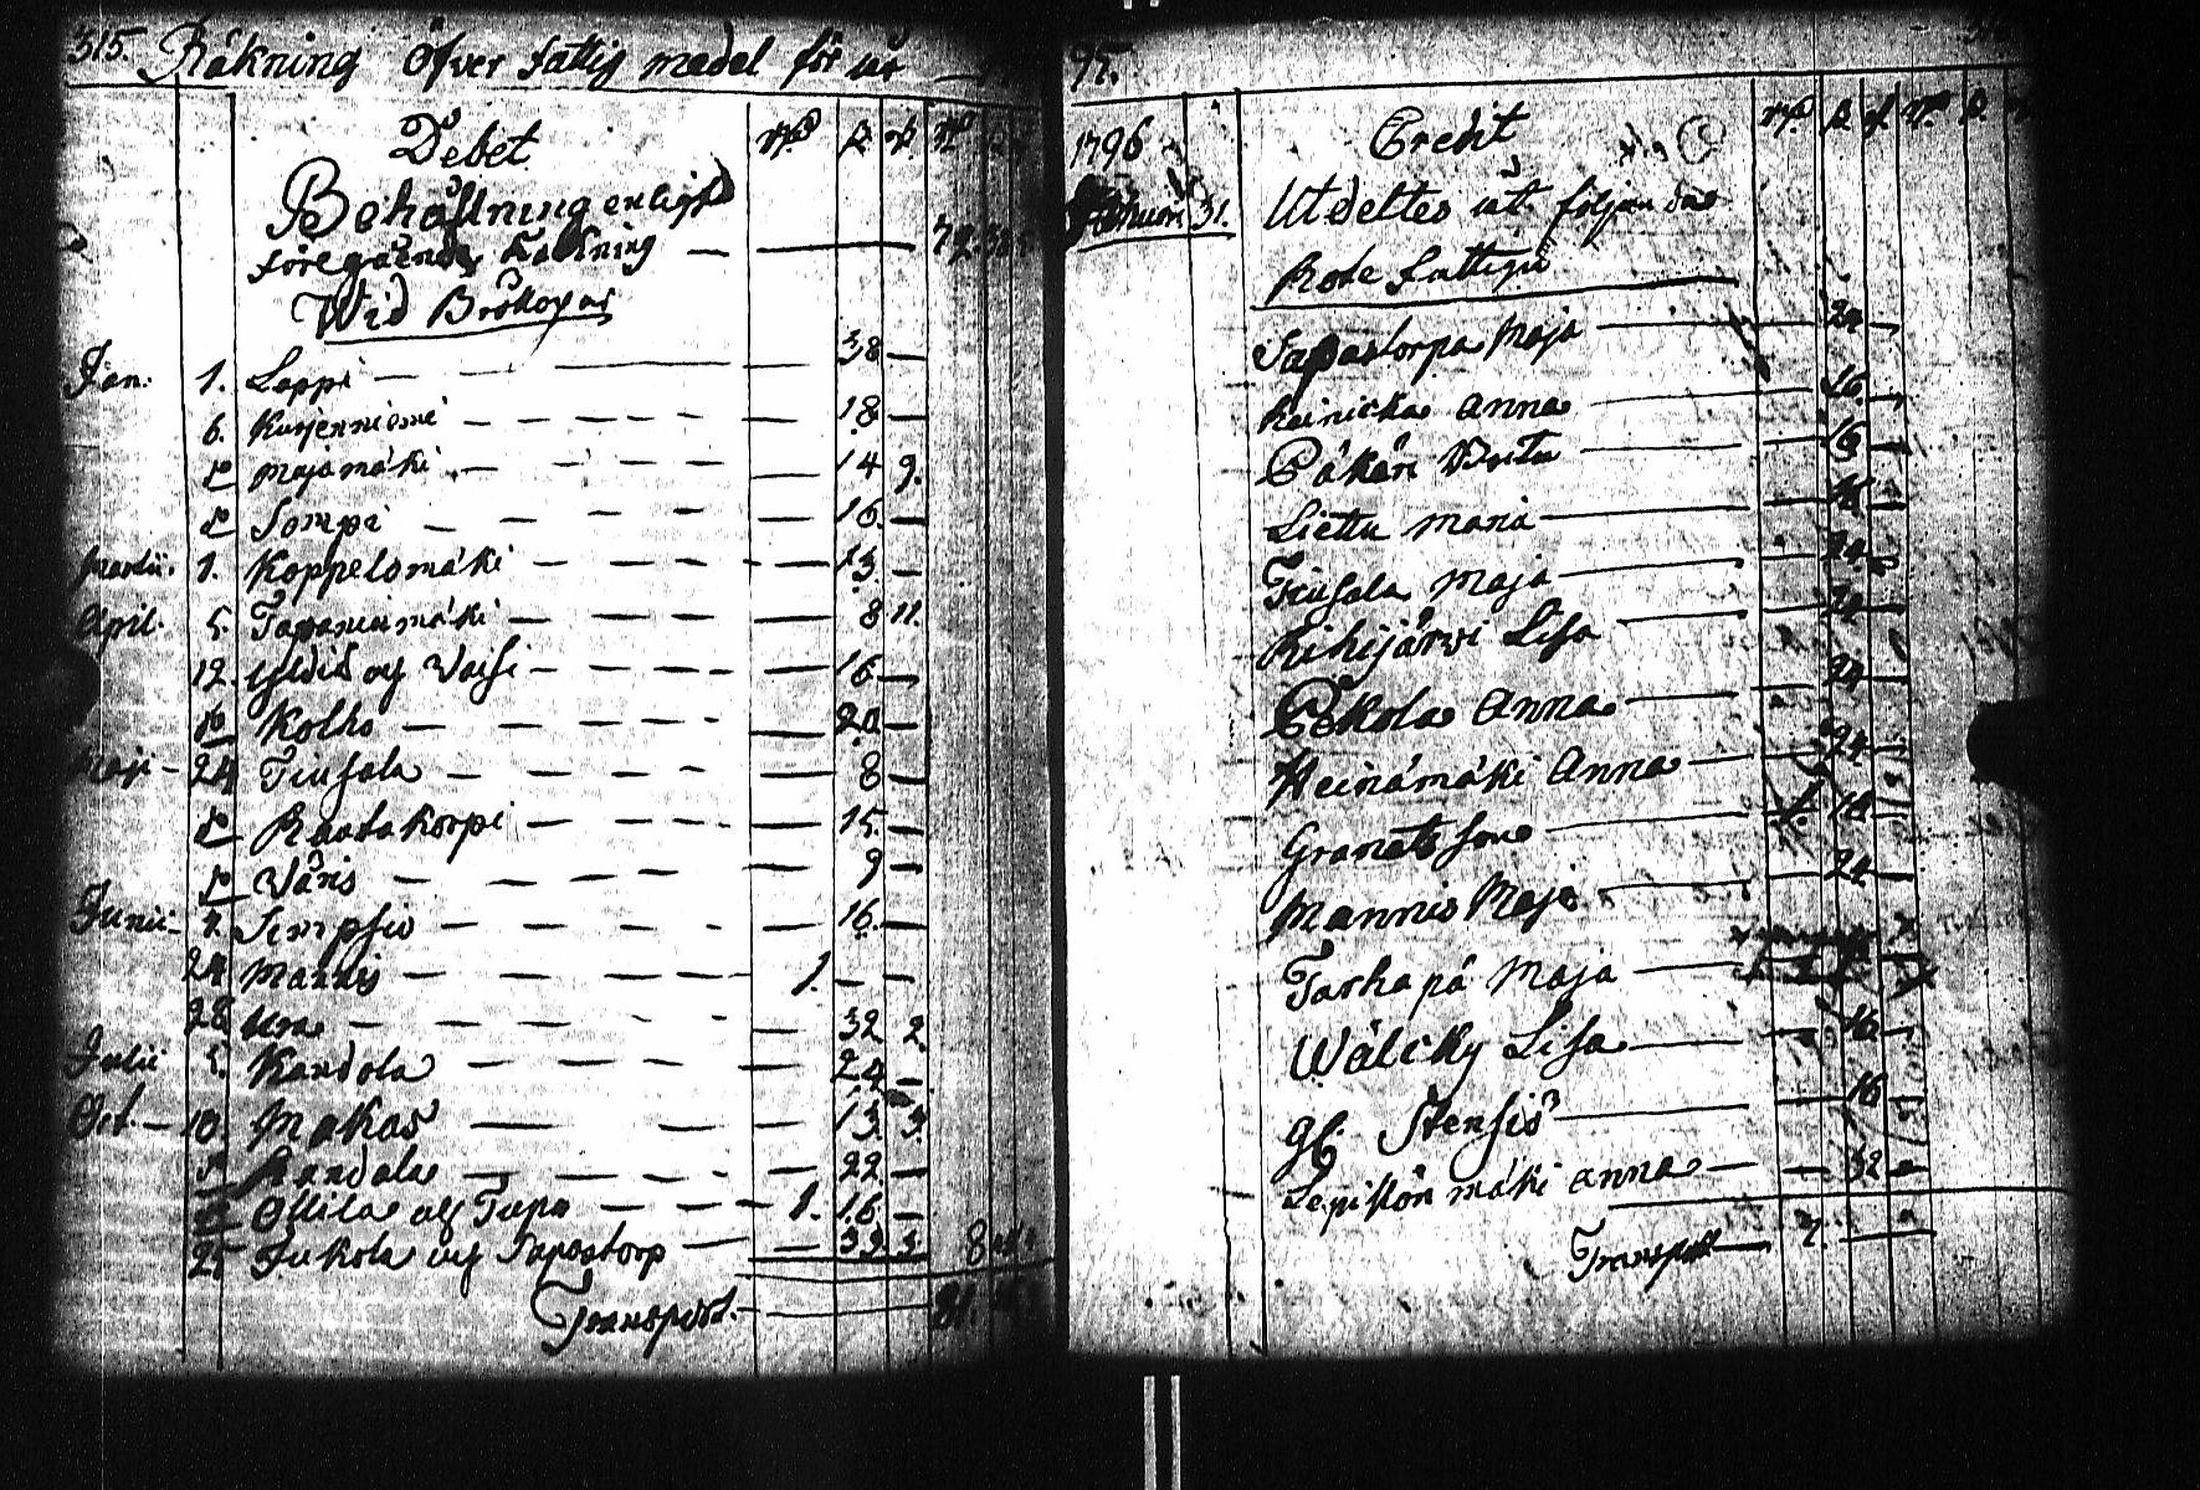 315. Räkning öfver fattig medel för år
Debet
Behållning enligt
föregående Räkning 72.
Wid Bröllopar
Jan: 1. Loppi 38
6. Kurjenniemi 18
D Majamäki 14 9.
D Sompi 16
Martii. 1. Koppelomäki 13
April. 5. Tapaninmäki 8 11.
12. och 16
D Kolho 20
Maji 24 Tiusala 8
D Raatakorpi 15
D Wäris 9
Junii 7. Simpsiö 16
24 Mannis 1.
28 Ura 32 2.
Julii 5. Kandola 24
Oct. 10 Makas 13 3.
D Kandola 22
D Ollila och Tapa 1. 16
25 Jukola och Sapastorp 33 3 8
Transport. 81.
95.
1796 Credit
31. Utdeltes åt följande
Rote fattiga
Sapastorpa Maja 24
Reinicka Anna 16
Päkäri 16
Liettu Maria
Tiusala Maja 24
Rihijärwi Lisa 24
Pekola Anna 24
Heinämäki Anna 24
Granats 1. 18
Mannis Maja 24
Tarhapä Maja
Wälcky Lisa 16
gl. Stensiö 16
Lepistön mäki Anna 32
Transport 7.